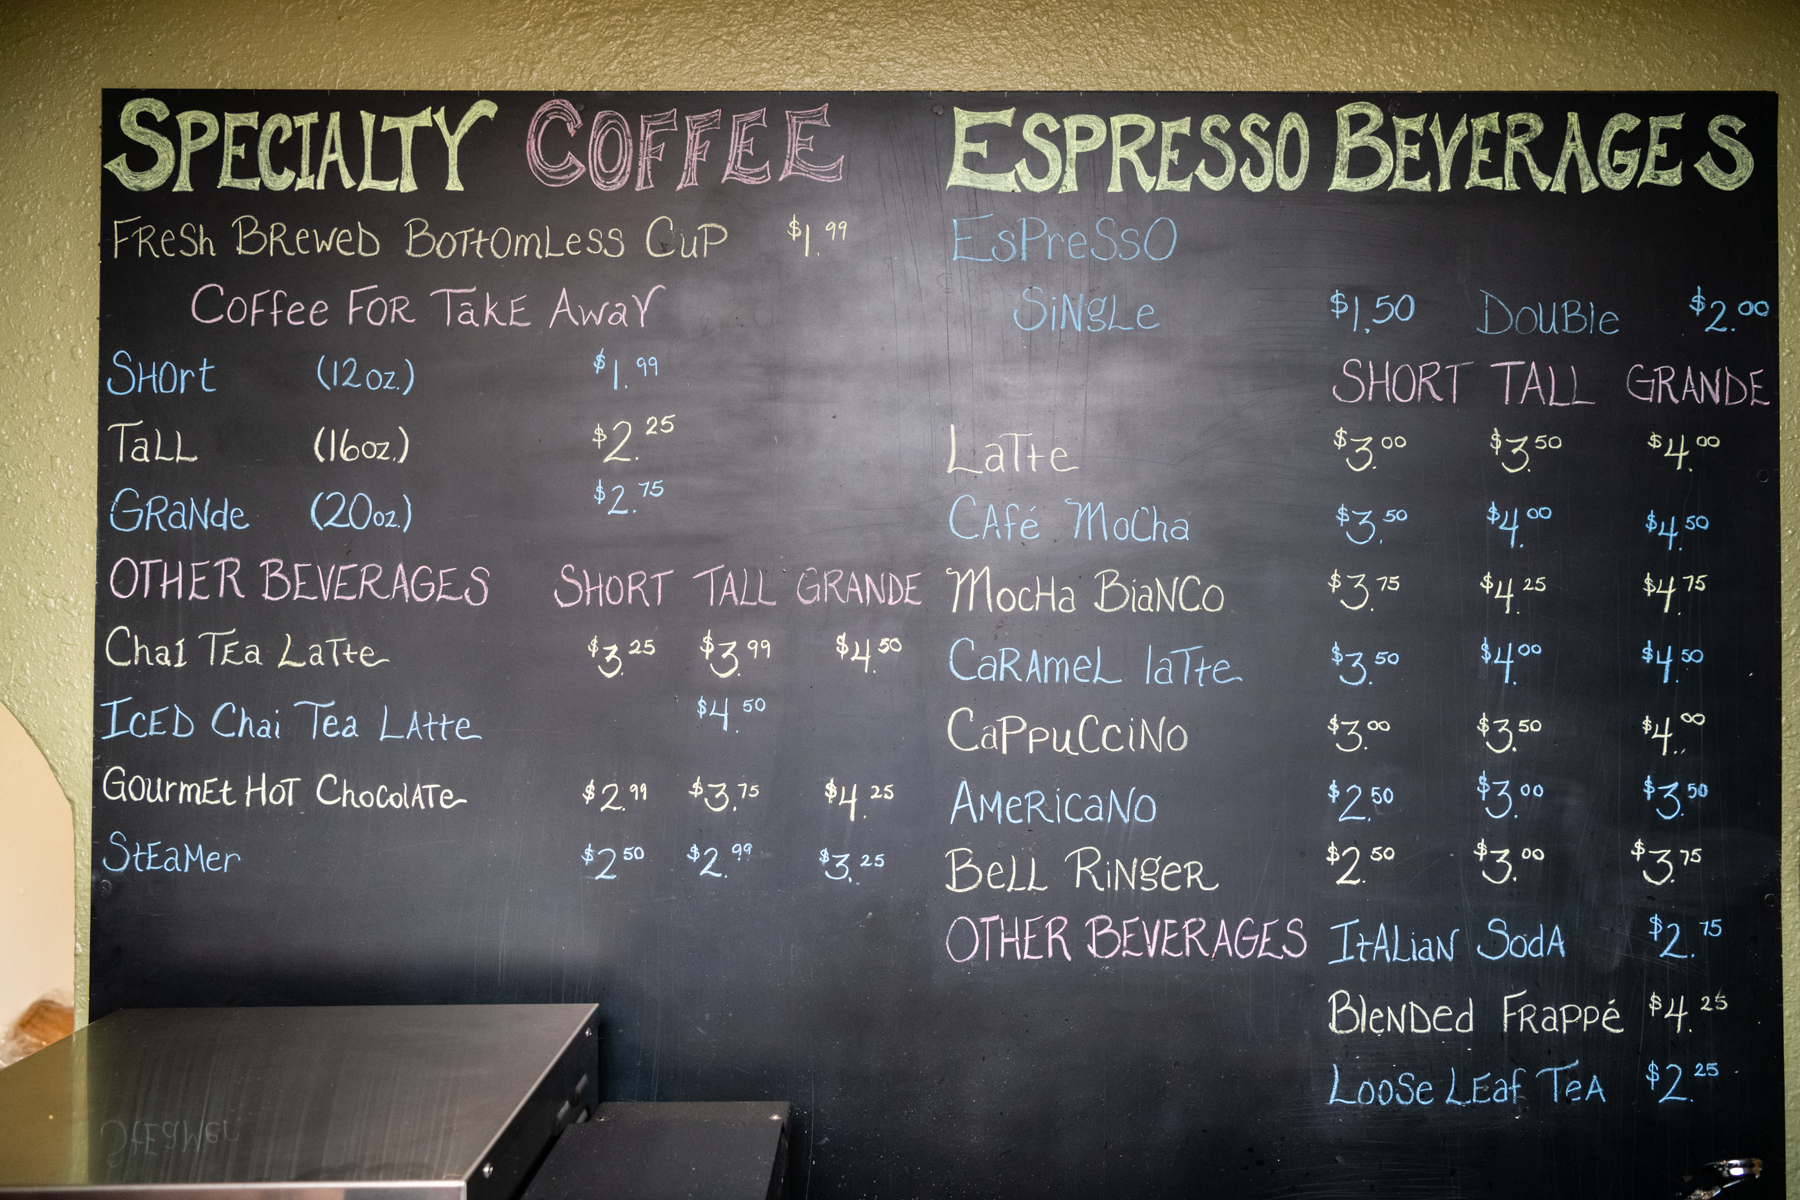 SPECIALTY COFFEE
FResh BRewed BoTtomLess CuP $1.99
Coffee FOR TaKE AwaY
SHOrt (12oz.) $1.99
TaLL (16oz.) $2.25
GRaNde (20oz.) $2.75
OTHER BEVERAGES SHORT TALL GRANDE
ChaI TEa LaTte $3.25 $3.99 $4.50
IcED Chai Tea LAtte $4.50
GourmEt HoT ChocolATe $2.99 $3.75 $4.25
StEaMer $2.50 $2.99 $3.25
ESPRESSO BEVERAGES
EsPreSsO
SiNgLe $1.50 DouBle $2.00
SHORT TALL GRANDE
LaTte $3.00 $3.50 $4.00
CAfé MoCha $3.50 $4.00 $4.50
MocHa BiaNCo $3.75 $4.25 $4.75
CaRAmeL laTte $3.50 $4.00 $4.50
CaPpuCciNo $3.00 $3.50 $4.00
AmeRicaNO $2.50 $3.00 $3.50
BeLL RiNgeR $2.50 $3.00 $3.75
OTHER BEVERAGES ItALiaN SodA $2.75
BleNDed FRaPPé $4.25
LooSe LEaf TeA $2.25